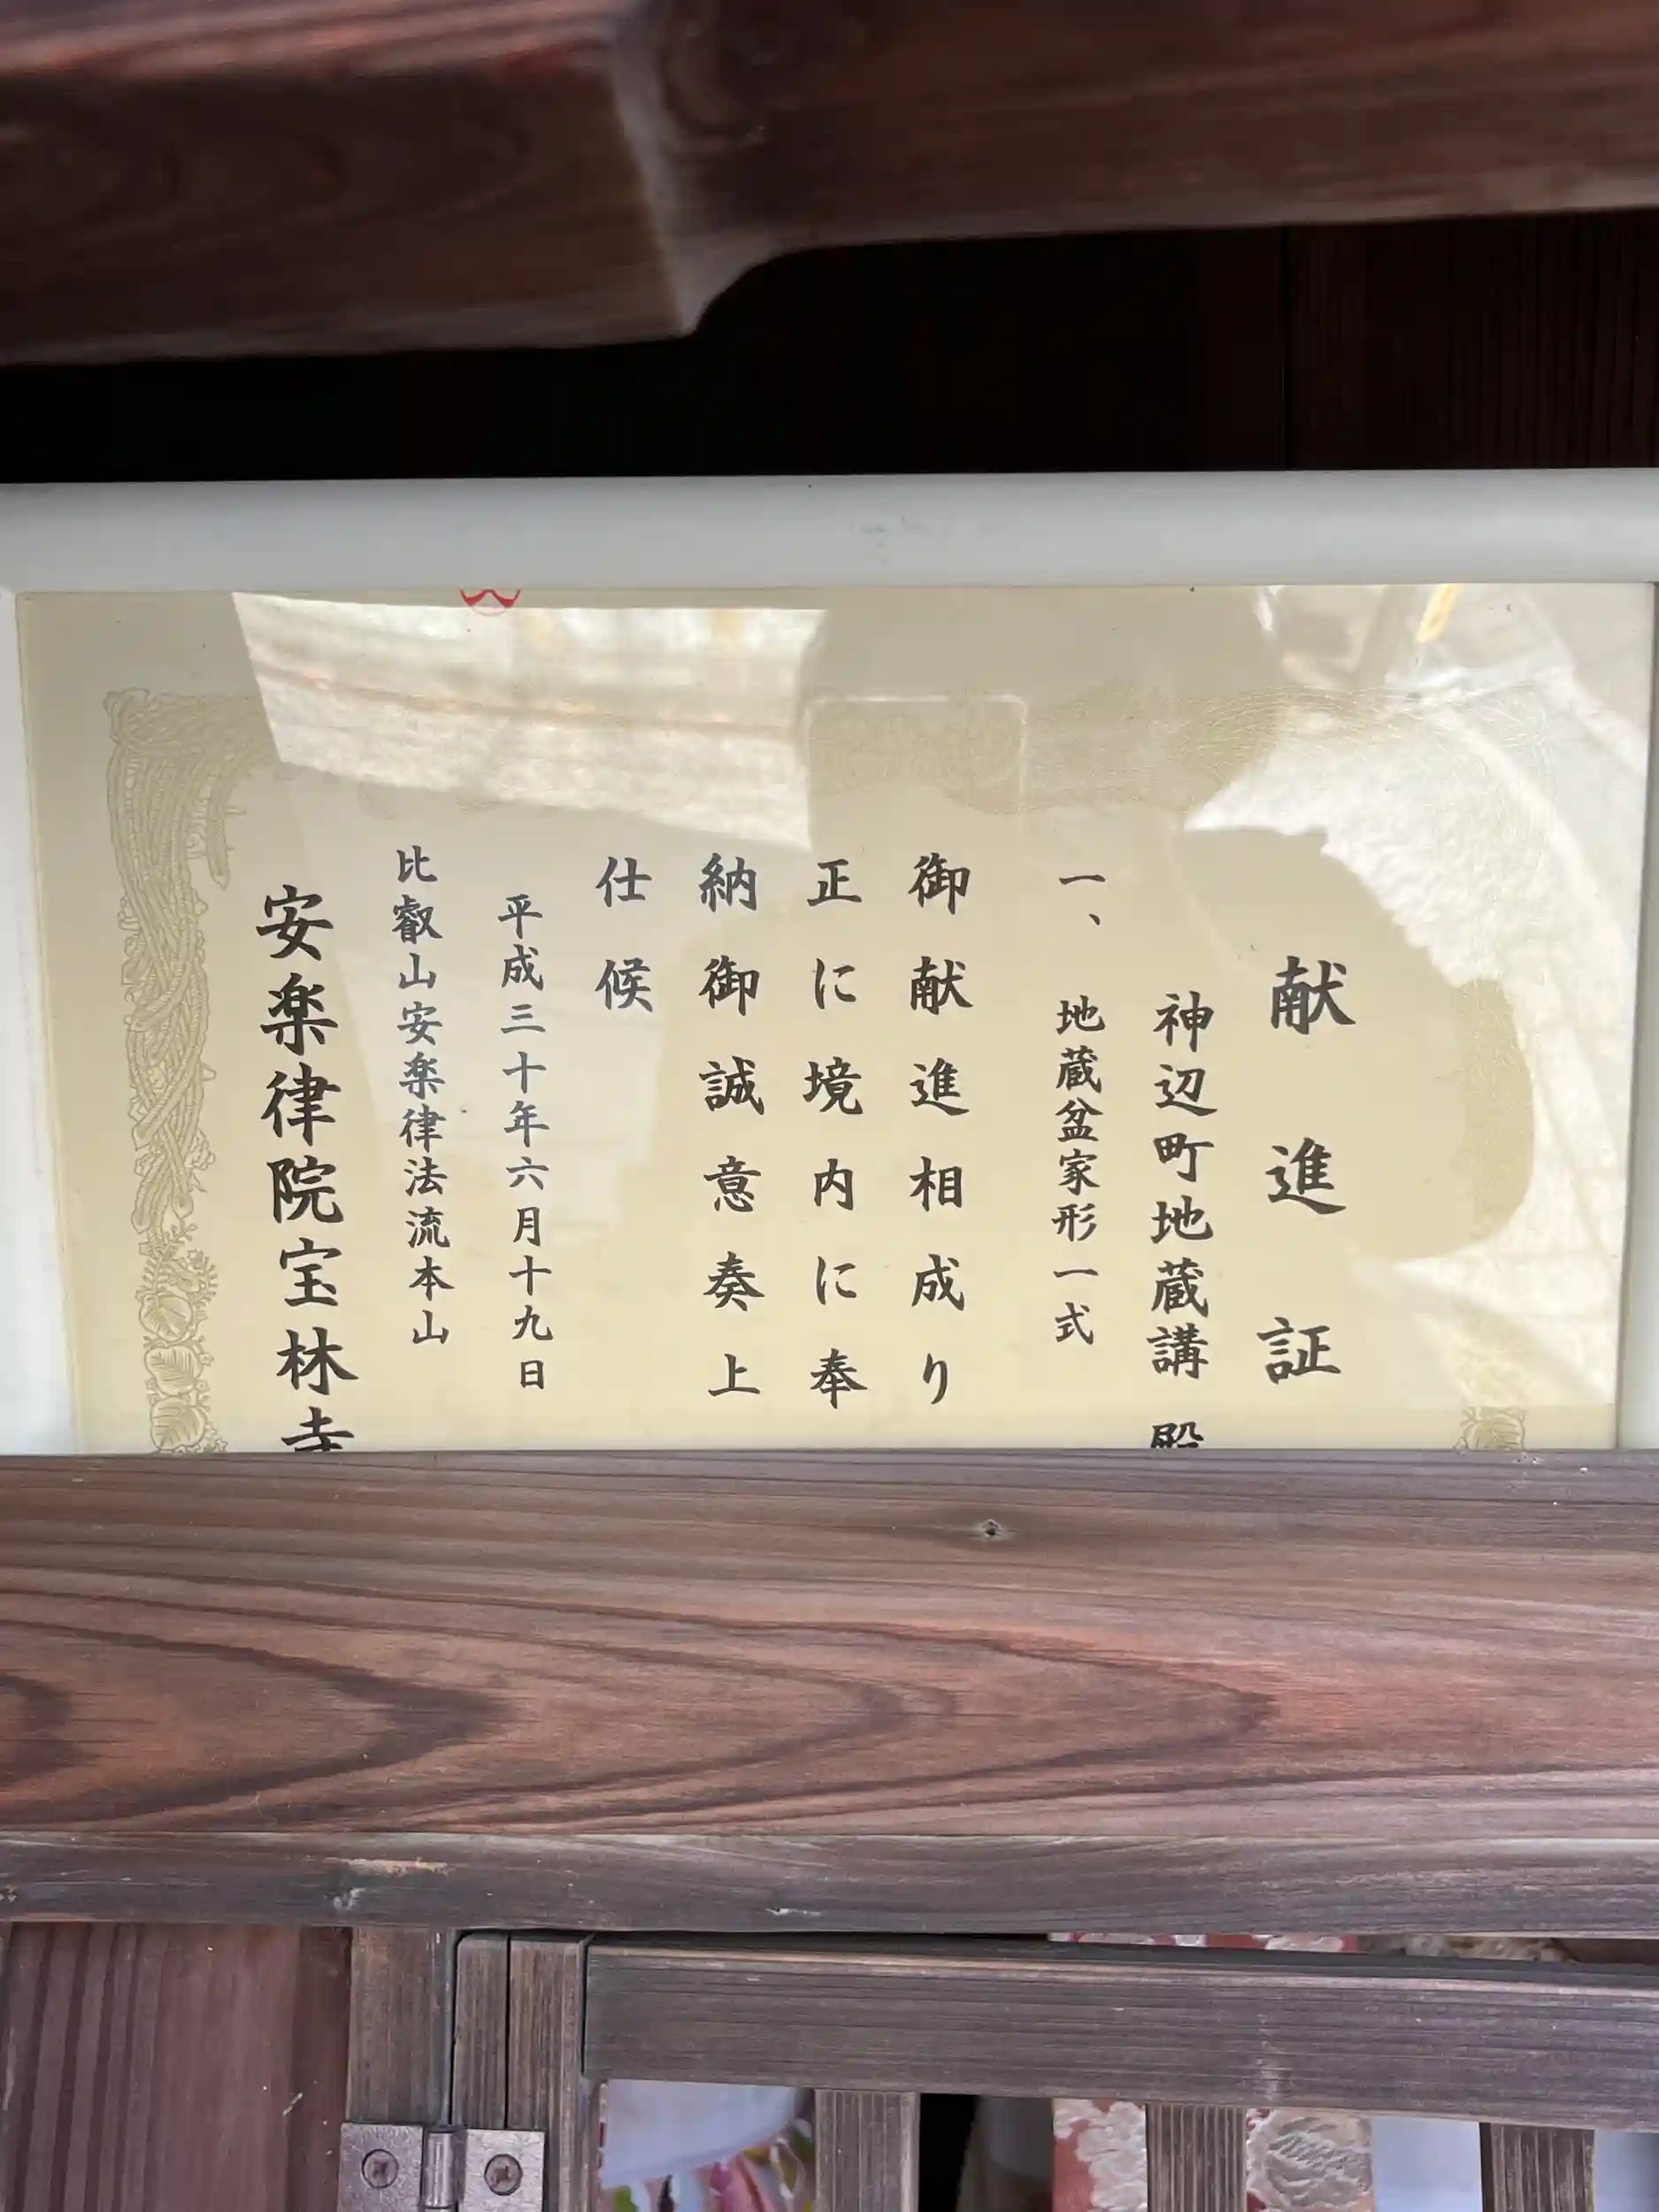 献進証
神辺町地蔵講 殿
一、 地蔵盆家形一式
御献進相成り
正に境内に奉
納御誠意奏上
仕候
平成三十年六月十九日
比叡山安楽律法流本山
安楽律院宝林寺